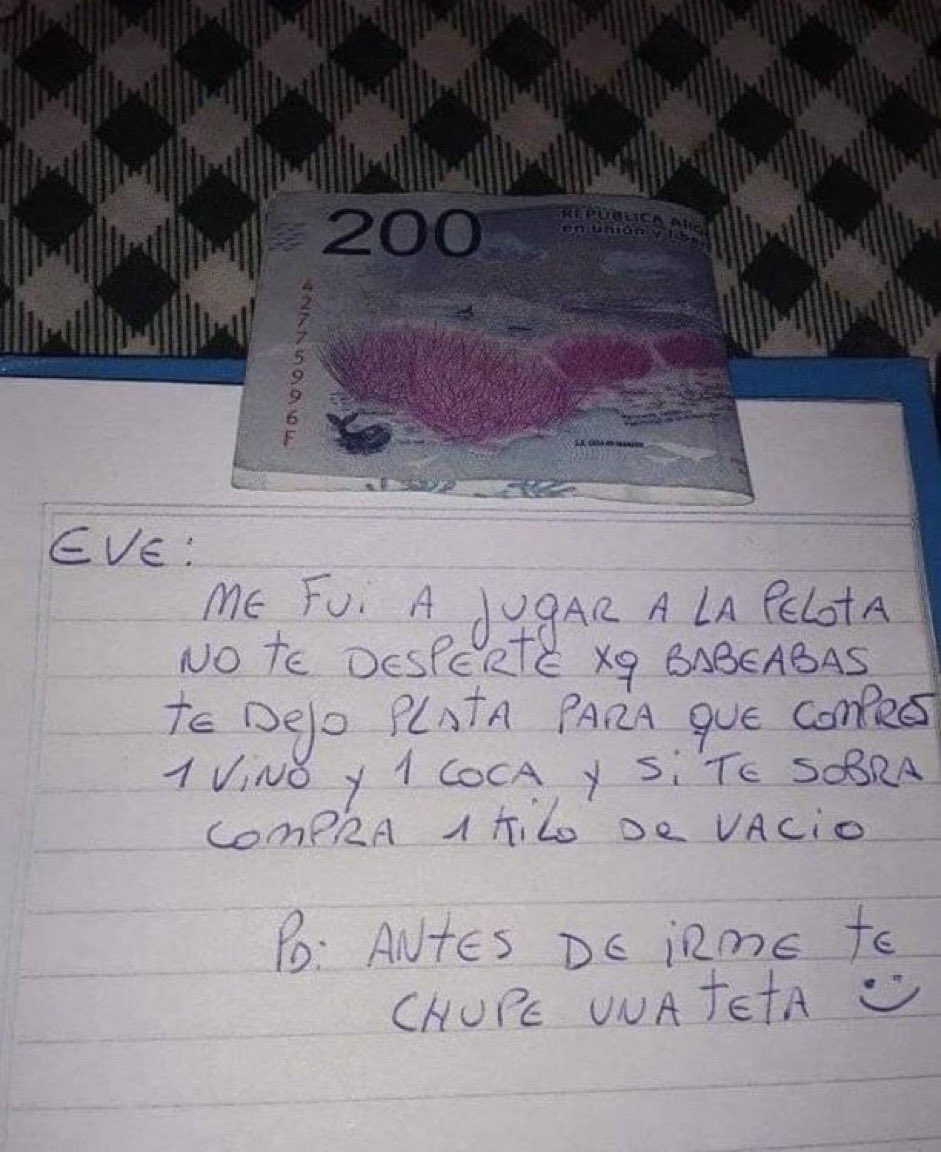 200
REPÚBLICA
en unión y
42775996F
EVE:
ME FUI A JUGAR A LA PELOTA
NO TE DESPERTE XQ BABEABAS
TE DEJO PLATA PARA QUE COMPRES
1 VINO Y 1 COCA Y SI TE SOBRA
COMPRA 1 KILO DE VACIO
PD: ANTES DE IRME TE
CHUPE UNA TETA